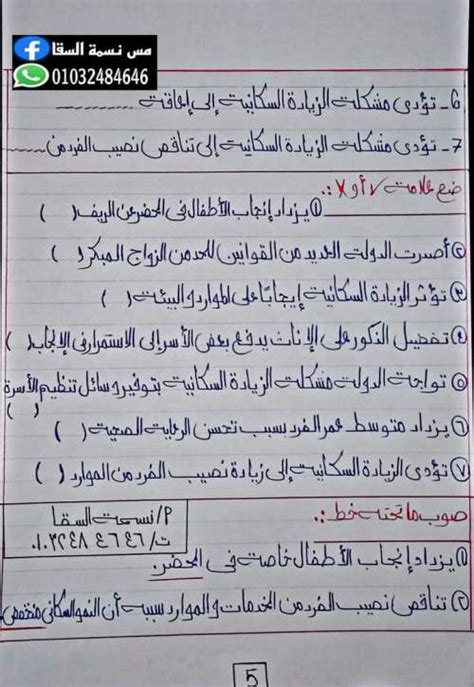 مس نسمة السقا
01032484646
6- تؤدى مشكلة الزيادة السكانية إلى إعاقة ..........
7- تؤدى مشكلة الزيادة السكانية إلى تناقص نصيب الفرد من ......
ضع علامة √ أو X :.
① يزداد إنجاب الأطفال فى الحضر عن الريف ( )
② أصدرت الدولة العديد من القوانين للحد من الزواج المبكر ( )
③ تؤثر الزيادة السكانية إيجابًا على الموارد والبيئة ( )
④ تفضيل الذكور على الإناث يدفع بعض الأسر إلى الاستمرار فى الإنجاب ( )
⑤ تواجة الدولة مشكلة الزيادة السكانية بتوفير وسائل تنظيم الأسرة
( )
⑥ يزداد متوسط عمر الفرد بسبب تحسن الرعاية الصحية ( )
⑦ تؤدى الزيادة السكانية إلى زيادة نصيب الفرد من الموارد ( )
صوب ما تحته خط :.
م/ نسمة السقا
ت/ ٠١٠٣٢٤٨٤٦٤٦
① يزداد إنجاب الأطفال خاصة فى الحضر.
② تناقص نصيب الفرد من الخدمات والموارد سببه أن النمو السكانى منخفض.
5